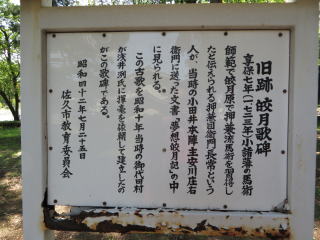 旧跡 皎月歌碑
享保七年(一七二二年)小諸藩の馬術
師範で皎月原で押兼流馬術を習得し
たと伝えられる押兼団右ヱ門長常という
人が、当時の小田井本陣主安川庄右
衛門に送った文書「夢想皎月記」の中
に見られる。
この古歌を昭和十年当時の御代田村
が浅井洌氏に揮毫を依頼して建立したの
がこの歌碑である。
昭和四十二年七月二十五日
佐久市教育委員会